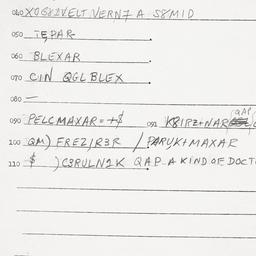 040 XOGKIVELT VERN7 A S8MID
050 TEPAR
060 BLEXAR
070 CIN QGLBLEX
080 —
090 PELCMAXAR=+$ 091 K8IPZ+NAR QAP
100 QM) FREZ)R3R / PARUK+MAXAR
110 $ )C3RULN2K QAP-A KIND OF DOCT